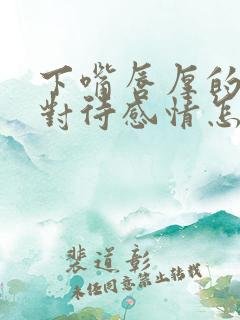 下嘴唇厚的
對待感情怎
裴道彰
未經同意禁止轉載